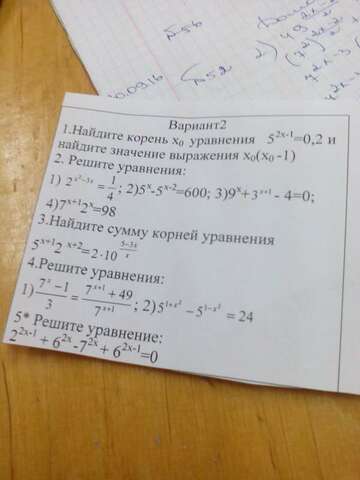 №56
2)
(№52
Вариант2
1.Найдите корень x₀ уравнения 5^{2x-1}=0,2 и
найдите значение выражения x₀(x₀ -1)
2. Решите уравнения:
1) 2^{x²-3x} = 1/4; 2)5^x-5^{x-2}=600; 3)9^x+3^{x+1} - 4=0;
4)7^{x+1}2^x=98
3.Найдите сумму корней уравнения
5^{x+1}2^{x+2}=2·10^{(5-3x)/x}
4.Решите уравнения:
1) (7^x -1)/3 = (7^{x+1} + 49)/7^{x+1}; 2)5^{1+x²} - 5^{1-x²} = 24
5* Решите уравнение:
2^{2x-1} + 6^{2x} -7^{2x} + 6^{2x-1}=0